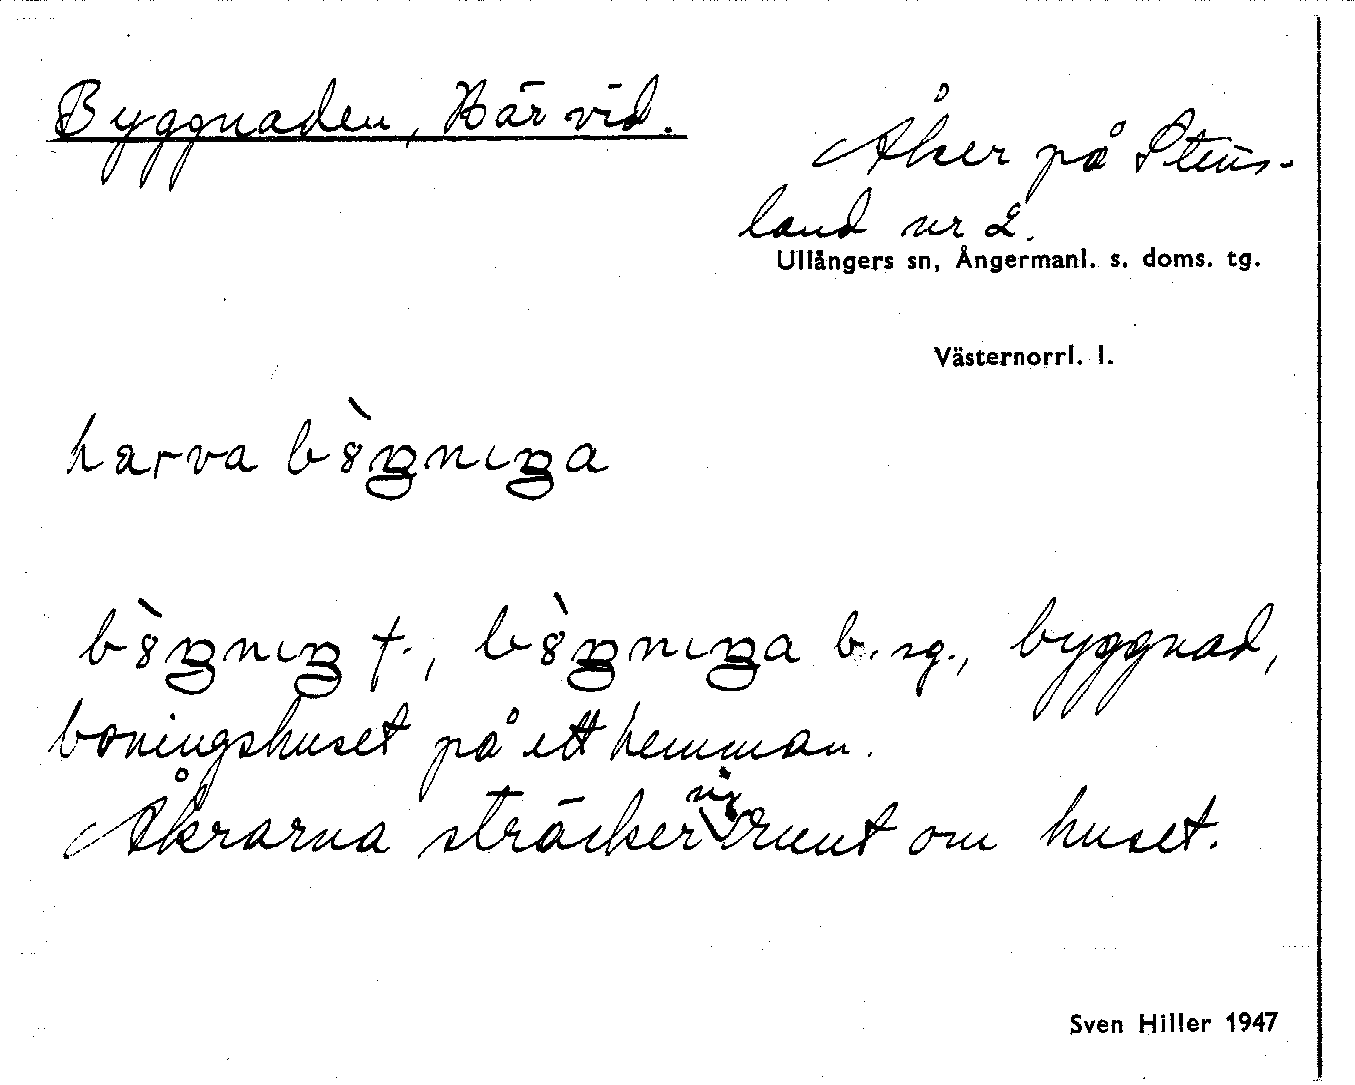 Byggnaden, Här vid.
Åker på Stens-
land nr 2.
Ullångers sn, Ångermanl. s. doms. tg.
Västernorrl. l.
boningshuset på ett hemman.
f., b. sg., byggnad,
Åkrarna sträcker sig runt om huset.
Sven Hiller 1947